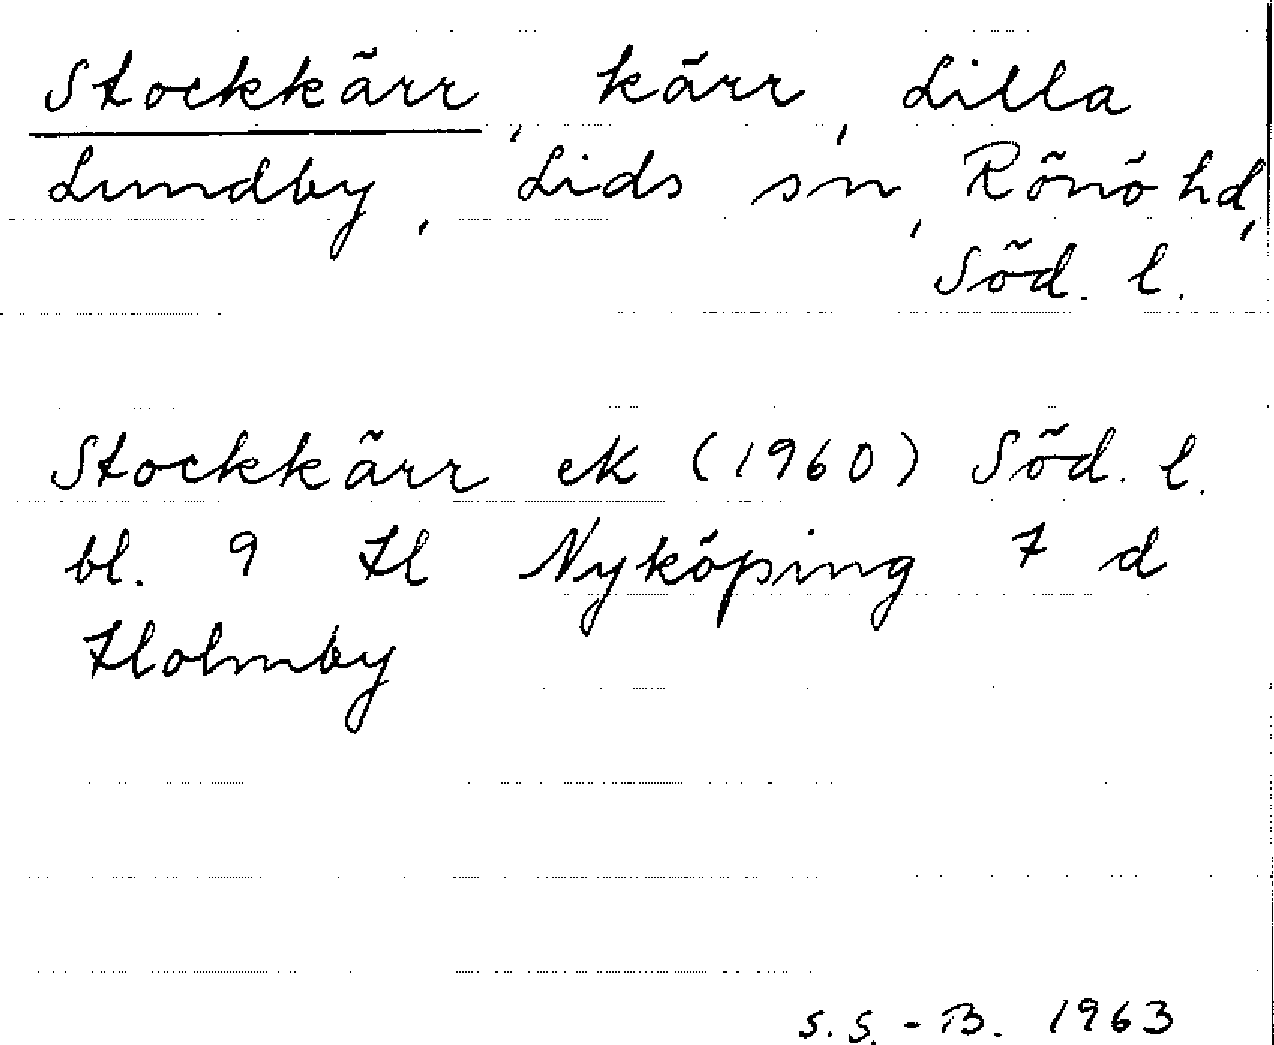 Stockkärr, kärr, Lilla
Lundby, Lids sn, Rönö hd,
Söd. l.
Stockkärr ek (1960) Söd. l.
bl. 9 H Nyköping 7 d
Holmby
S. S. - B. 1963